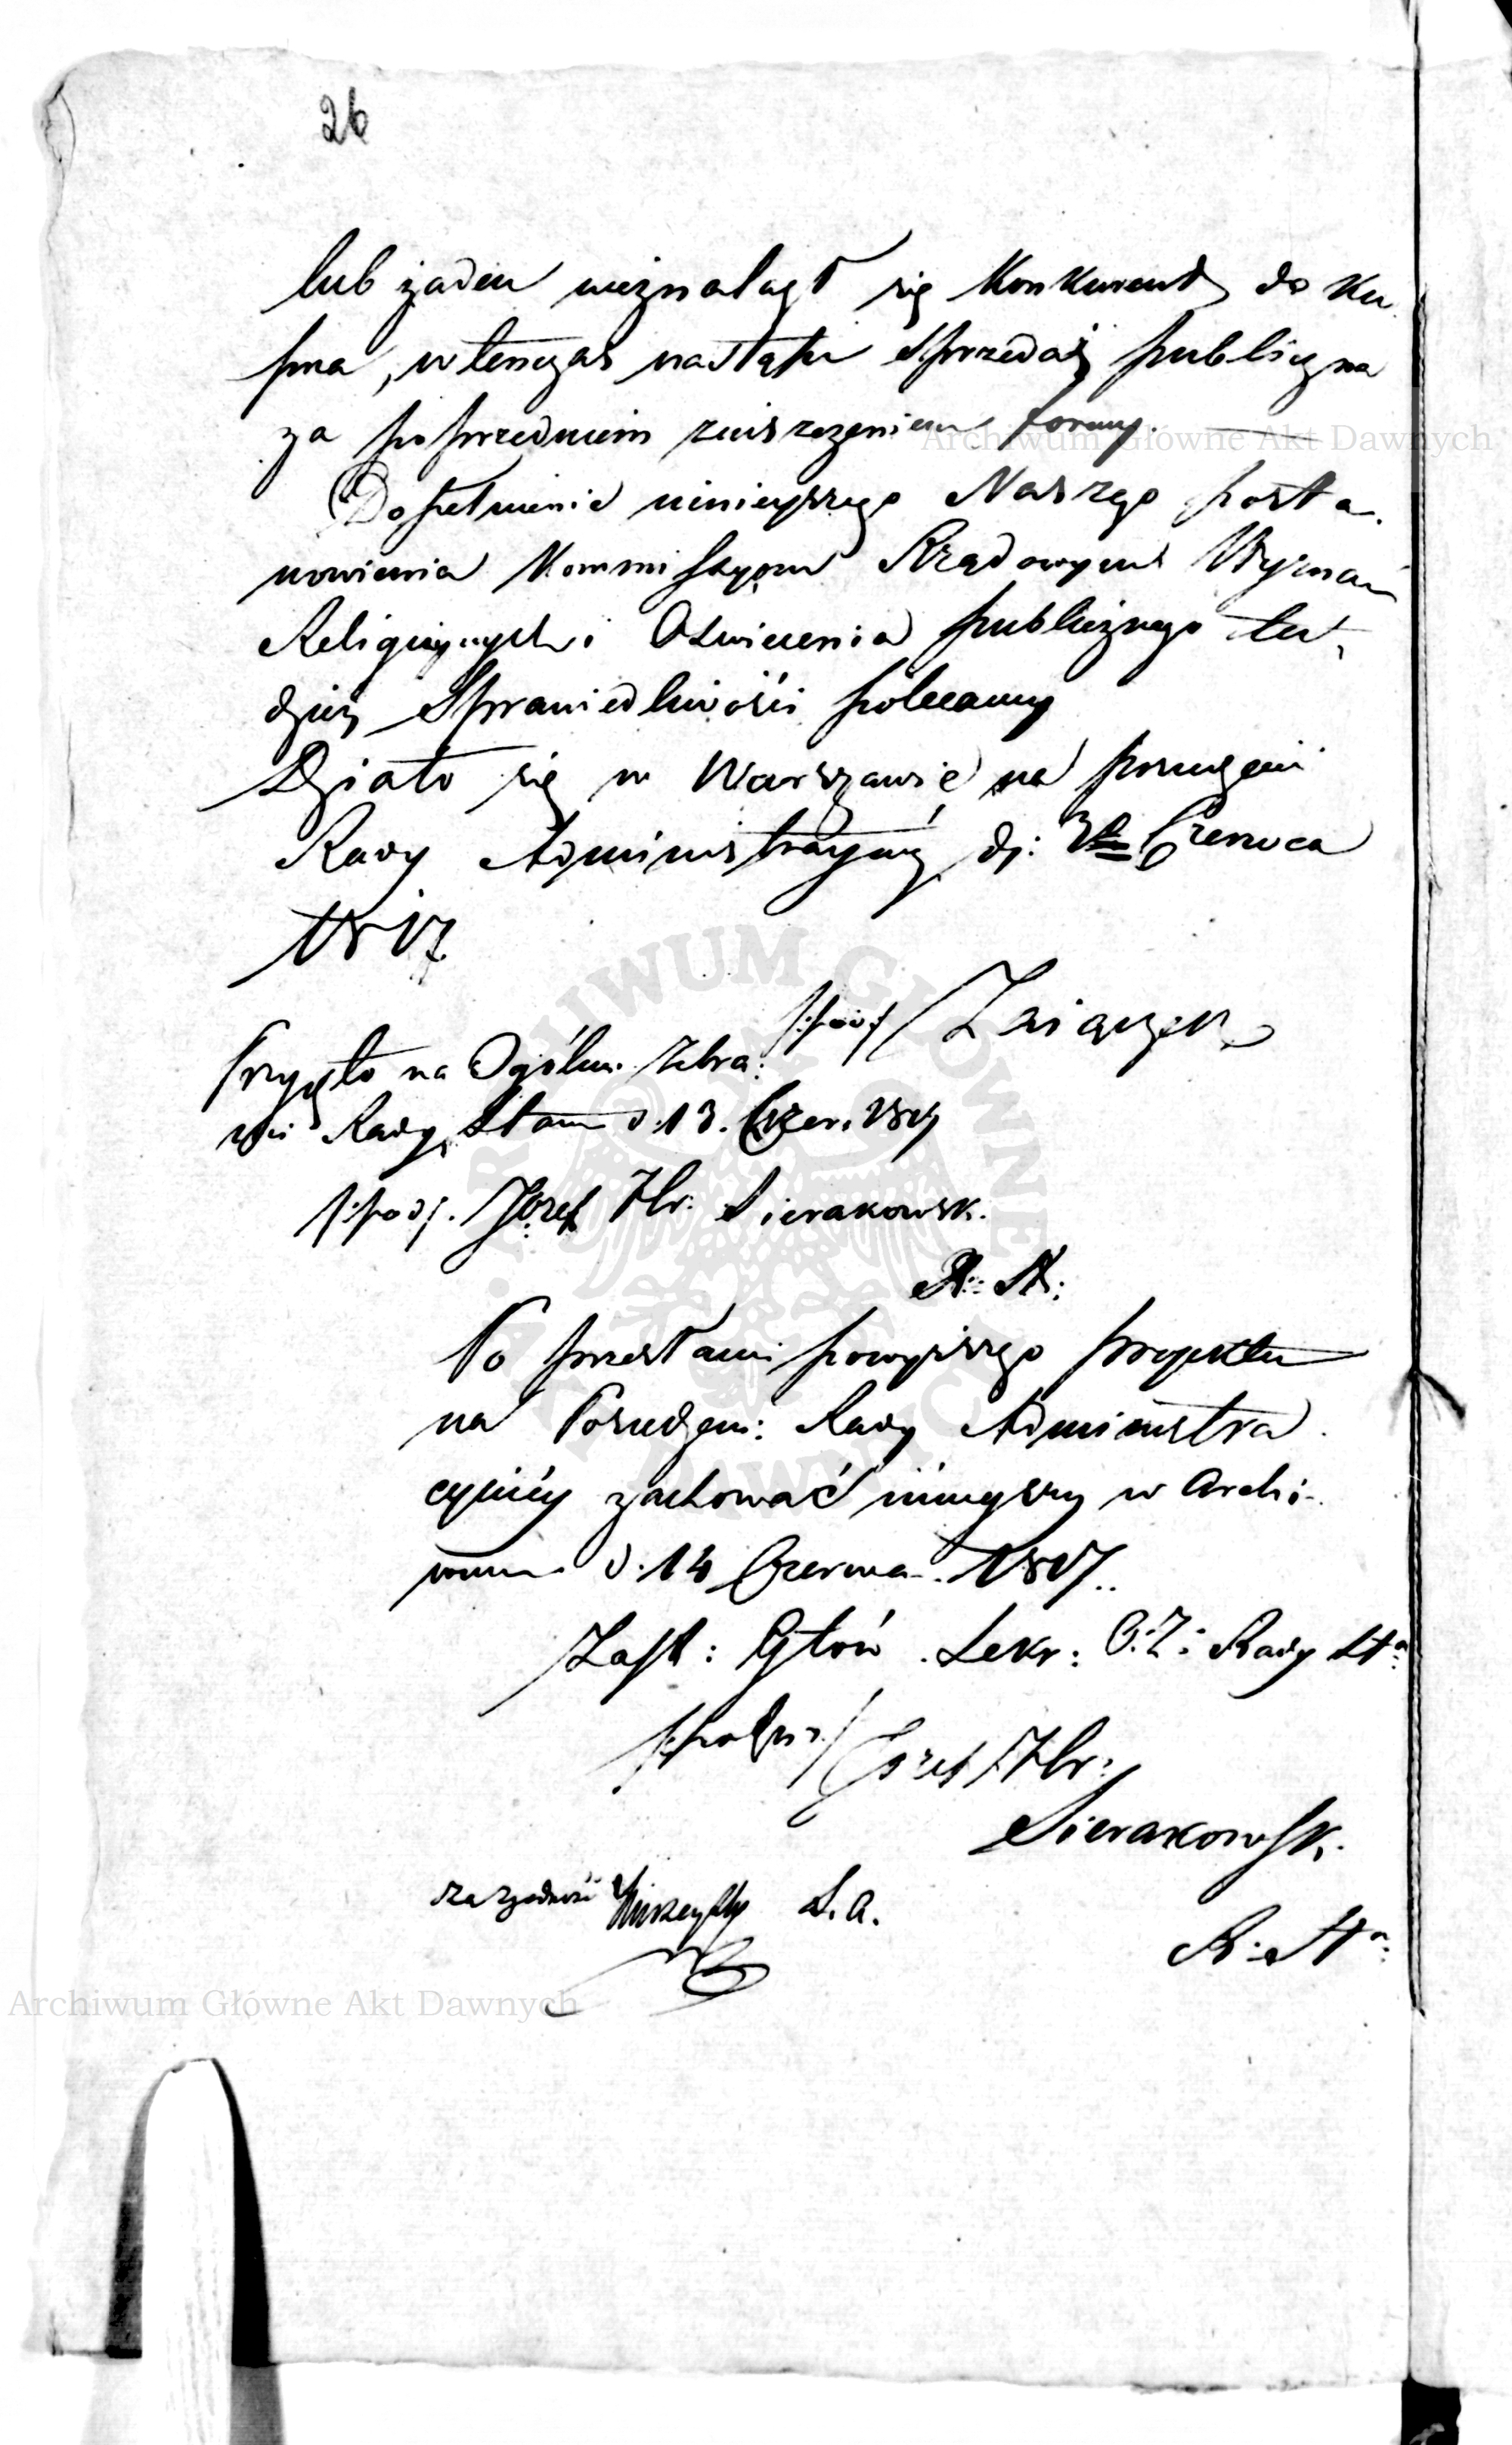 26
lub żaden nieznalazł się Konkurent do Ku
pna, wtenczas nastąpi Sprzedaż publiczna
za poprzedniem zniszczeniem formy.
Dopełnienie ninieyszego Naszego posta
nowienia Kommissyom Rządowym Wyznań
Religiynych i Oświecenia publicznego tu
dzież Sprawiedliwości polecamy
Działo się w Warszawie na posiedzeniu
Rady Administracyiney dj: Czerwca
1817
/:pod:/ Zaiączek
Przyjęto na Ogóln. Zebra:
niu Rady Stanu d. 13. Czer. 1817
/:pod:/. Józef Hr. Sierakowsk.
R: St:
Po przesłaniu powyższego projektu
na Posiedzeni: Rady Administra
cyiney zachować ninieyszy w Archi-
wum d. 14 Czerwca. 1817.
Zast: Głów. Sekr: O: Z: Rady Sta:
/:podpis:/ Józef Hr:
Sierakowsk.
R: Sta:
Za zgodność S. A.
Archiwum Główne Akt Dawnych
Archiwum Główne Akt Dawnych
ARCHIWUM GŁÓWNE AKT DAWNYCH